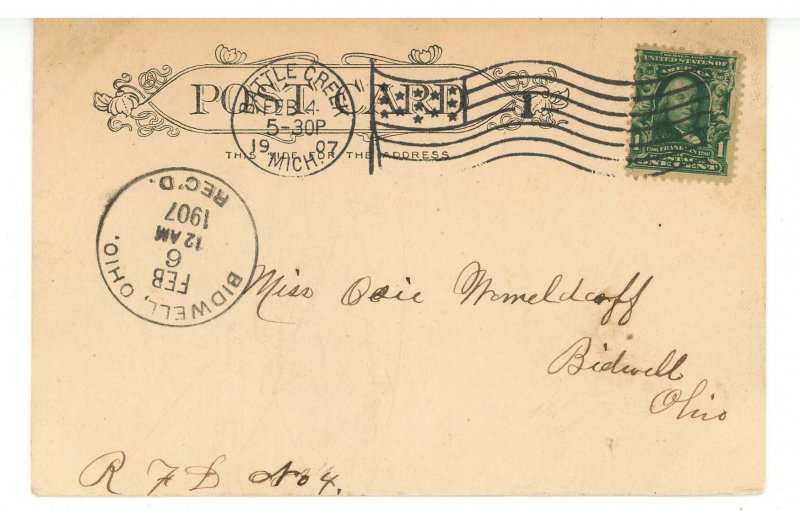 POST CARD
THIS SIDE FOR THE ADDRESS
BATTLE CREEK
FEB 4
5-30P
19 07
MICH.
1
UNITED STATES OF
AMERICA
1706 FRANKLIN 1790
POSTAGE
ONE CENT
1 1
BIDWELL, OHIO.
FEB
6
12 AM
1907
REC'D.
Miss Osie Womeldorff
Bidwell
Ohio
R F D No 4.